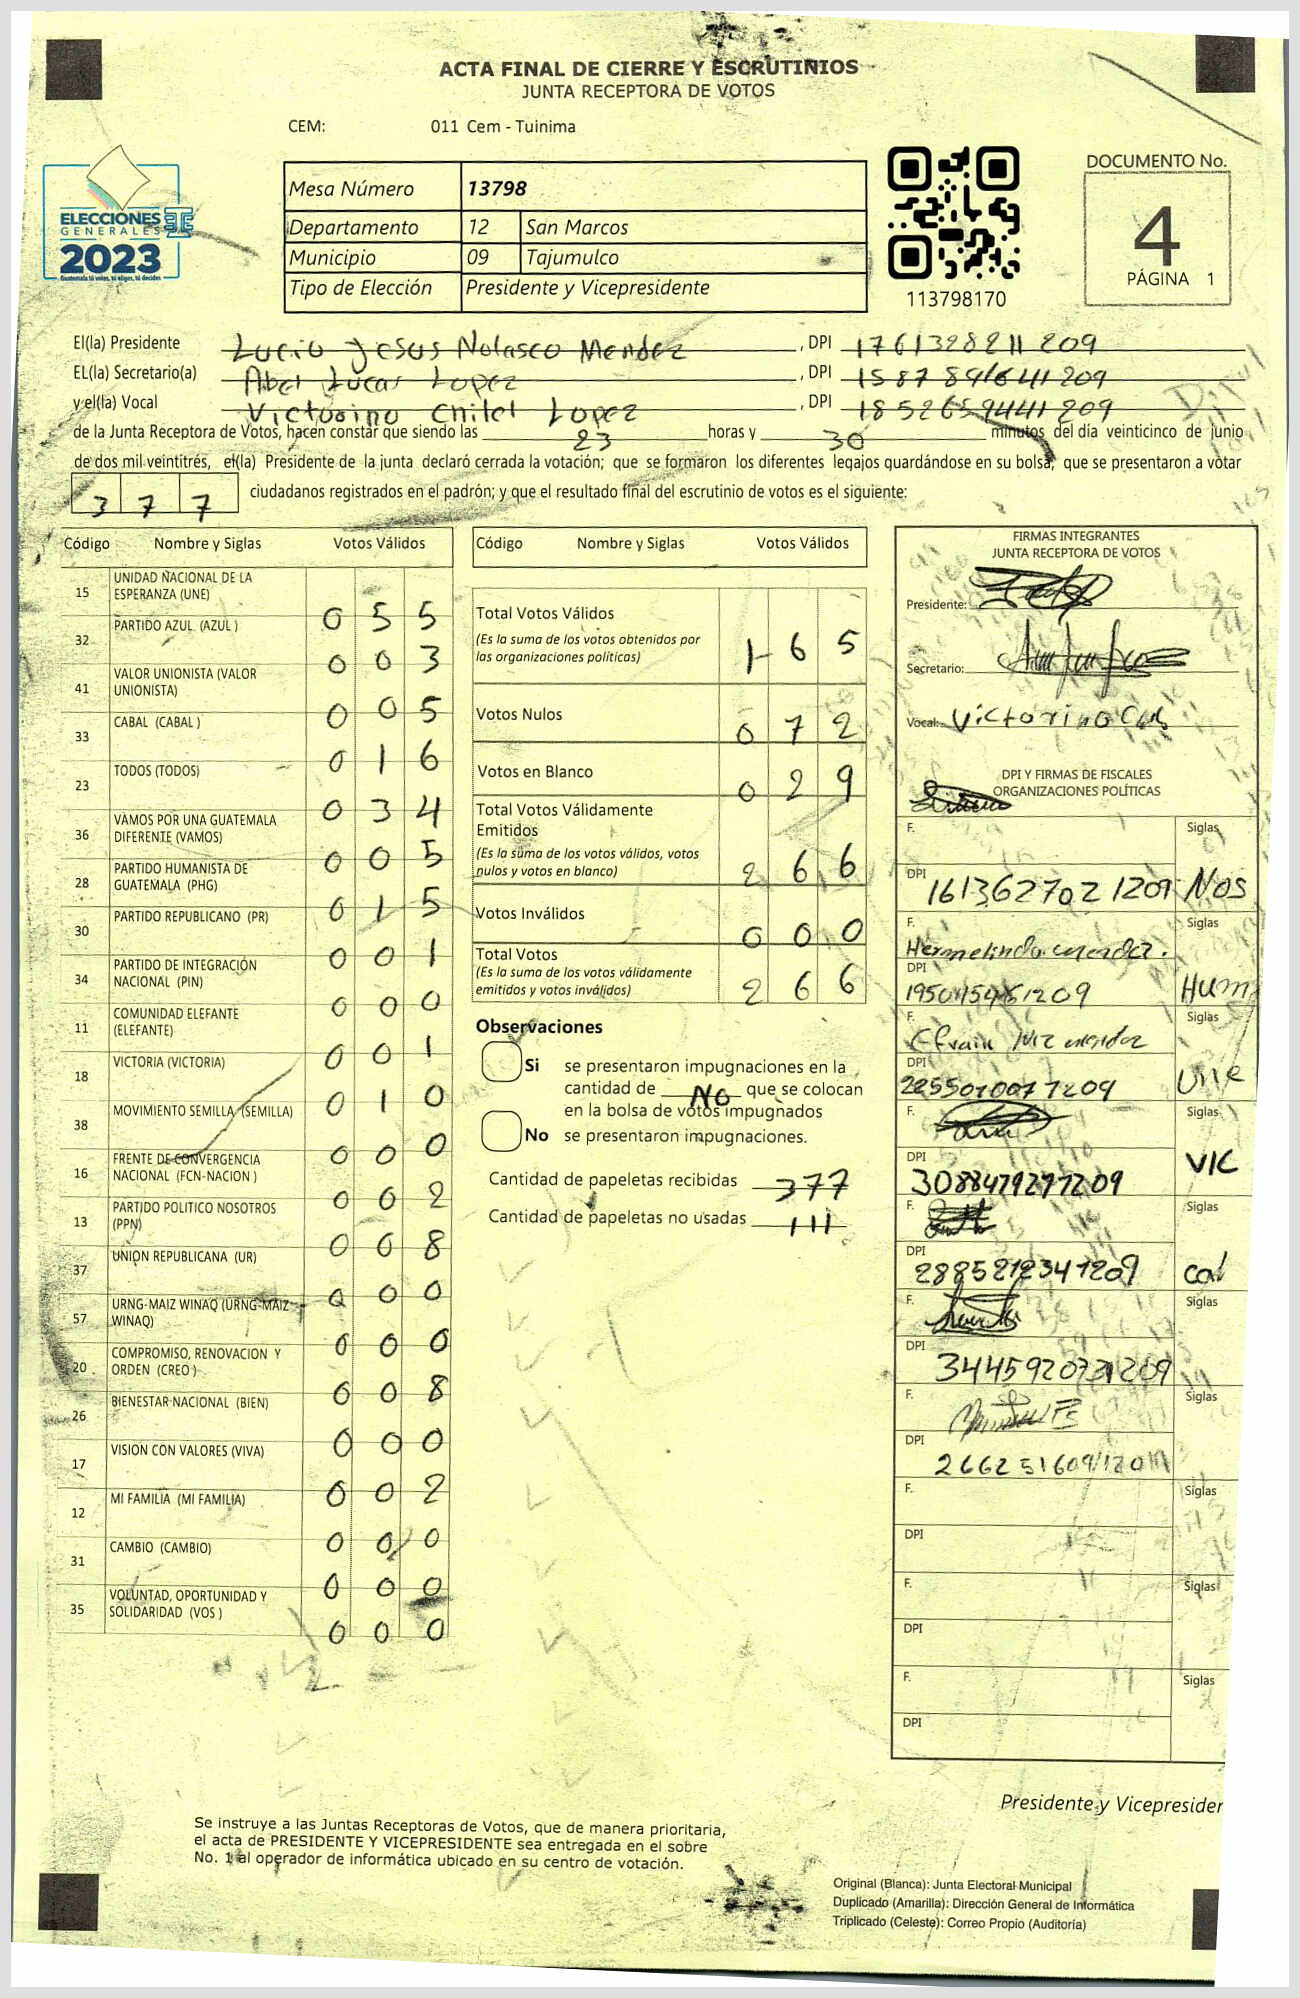 ACTA FINAL DE CIERRE Y ESCRUTINIOS
JUNTA RECEPTORA DE VOTOS
CEM: 011 Cem - Tuinima
ELECCIONES
GENERALES
2023
Guatemala tú votas, tú eliges, tú decides
Mesa Número 13798
Departamento 12 San Marcos
Municipio 09 Tajumulco
Tipo de Elección Presidente y Vicepresidente
113798170
DOCUMENTO No.
4
PÁGINA 1
El(la) Presidente Lucio Jesus Nolasco Mendez, DPI 1761328211209
EL(la) Secretario(a) Abel Lucas Lopez, DPI
y el(la) Vocal Victorino Chilel Lopez, DPI 1852659441209
de la Junta Receptora de Votos, hacen constar que siendo las 23 horas y 30 minutos del día veinticinco de junio
de dos mil veintitrés, el(la) Presidente de la junta declaró cerrada la votación; que se formaron los diferentes legajos guardándose en su bolsa; que se presentaron a votar
377 ciudadanos registrados en el padrón; y que el resultado final del escrutinio de votos es el siguiente:
Código Nombre y Siglas Votos Válidos
15 UNIDAD NACIONAL DE LA ESPERANZA (UNE) 0 5 5
32 PARTIDO AZUL (AZUL ) 0 0 3
41 VALOR UNIONISTA (VALOR UNIONISTA) 0 0 5
33 CABAL (CABAL ) 0 1 6
23 TODOS (TODOS) 0 3 4
36 VAMOS POR UNA GUATEMALA DIFERENTE (VAMOS) 0 0 5
28 PARTIDO HUMANISTA DE GUATEMALA (PHG) 0 1 5
30 PARTIDO REPUBLICANO (PR) 0 0 1
34 PARTIDO DE INTEGRACIÓN NACIONAL (PIN) 0 0 0
11 COMUNIDAD ELEFANTE (ELEFANTE) 0 0 1
18 VICTORIA (VICTORIA) 0 1 0
38 MOVIMIENTO SEMILLA (SEMILLA) 0 0 0
16 FRENTE DE CONVERGENCIA NACIONAL (FCN-NACION ) 0 0 2
13 PARTIDO POLITICO NOSOTROS (PPN) 0 0 8
37 UNION REPUBLICANA (UR) 0 0 0
57 URNG-MAIZ WINAQ (URNG-MAIZ WINAQ) 0 0 0
20 COMPROMISO, RENOVACION Y ORDEN (CREO ) 0 0 8
26 BIENESTAR NACIONAL (BIEN) 0 0 0
17 VISION CON VALORES (VIVA) 0 0 2
12 MI FAMILIA (MI FAMILIA) 0 0 0
31 CAMBIO (CAMBIO) 0 0 0
35 VOLUNTAD, OPORTUNIDAD Y SOLIDARIDAD (VOS ) 0 0 0
Código Nombre y Siglas Votos Válidos
Total Votos Válidos 1 6 5
(Es la suma de los votos obtenidos por
las organizaciones políticas)
Votos Nulos 0 7 2
Votos en Blanco 0 2 9
Total Votos Válidamente
Emitidos
(Es la suma de los votos válidos, votos
nulos y votos en blanco) 2 6 6
Votos Inválidos 0 0 0
Total Votos
(Es la suma de los votos válidamente
emitidos y votos inválidos) 2 6 6
Observaciones
Si se presentaron impugnaciones en la
cantidad de No que se colocan
en la bolsa de votos impugnados
No se presentaron impugnaciones.
Cantidad de papeletas recibidas 377
Cantidad de papeletas no usadas 111
FIRMAS INTEGRANTES
JUNTA RECEPTORA DE VOTOS
Presidente:
Secretario:
Vocal: Victorino
DPI Y FIRMAS DE FISCALES
ORGANIZACIONES POLÍTICAS
F. Siglas
DPI 1613627021209 Nos
F. Siglas
DPI Hum
F. Efrain Siglas
DPI 2255070071209 Une
F. Siglas
DPI 3088479271209 VIC
F. Siglas
DPI 2885212341209 cal
F. Siglas
DPI 3445920731209
F. Siglas
DPI
F. Siglas
DPI
F. Siglas
DPI
F. Siglas
DPI
Presidente y Vicepresiden
Se instruye a las Juntas Receptoras de Votos, que de manera prioritaria,
el acta de PRESIDENTE Y VICEPRESIDENTE sea entregada en el sobre
No. 1 al operador de informática ubicado en su centro de votación.
Original (Blanca): Junta Electoral Municipal
Duplicado (Amarilla): Dirección General de Informática
Triplicado (Celeste): Correo Propio (Auditoría)